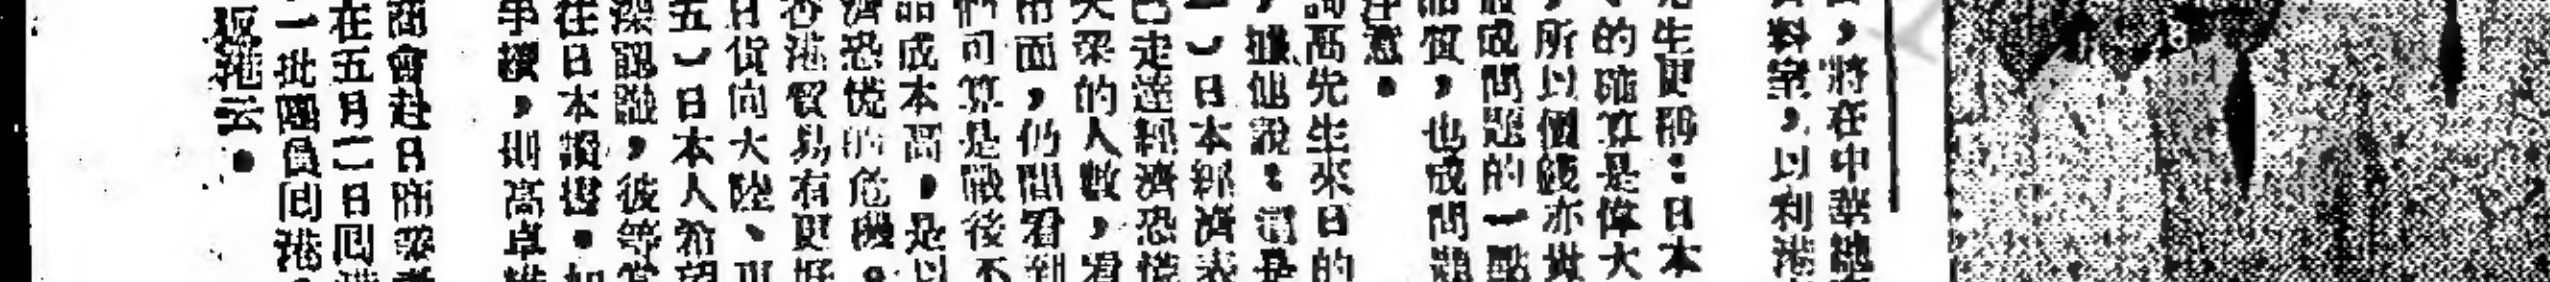 ，將在中華總
料室，以利港
生更稱：日本
的確算是偉大
，所以價錢亦
成問題的一點
質，也成問題
注意。
高先生來日的
，據他說：這是
）日本經濟表
已走進經濟恐慌
的人數，看
市面，仍間看到
們可算是戰後不
品成本高，是以
濟恐慌的危機。
香港貿易有更好
日貨向大陸、
五）日本人希望
深認識，彼等當
在日本讀書。如
事變，則高卓
商會赴日商業
在五月二日回港
一批團員回港。
返港云。